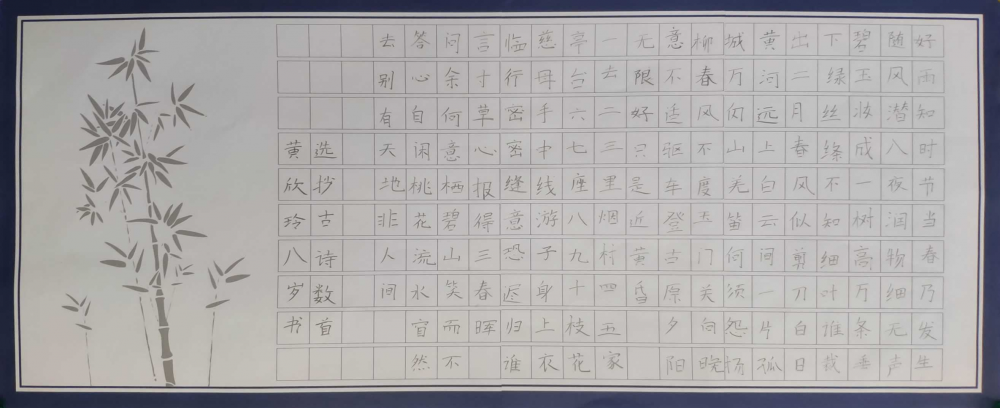 好雨知时节当春乃发生
随风潜入夜润物细无声
碧玉妆成一树高万条垂
下绿丝绦不知细叶谁裁
出二月春风似剪刀白日
黄河远上白云间一片孤
城万仞山羌笛何须怨杨
柳春风不度玉门关向晚
意不适驱车登古原夕阳
无限好只是近黄昏
一去二三里烟村四五家
亭台六七座八九十枝花
慈母手中线游子身上衣
临行密密缝意恐迟归谁
言寸草心报得三春晖
问余何意栖碧山笑而不
答心自闲桃花流水窅然
去别有天地非人间
选抄古诗数首
黄欣玲八岁书